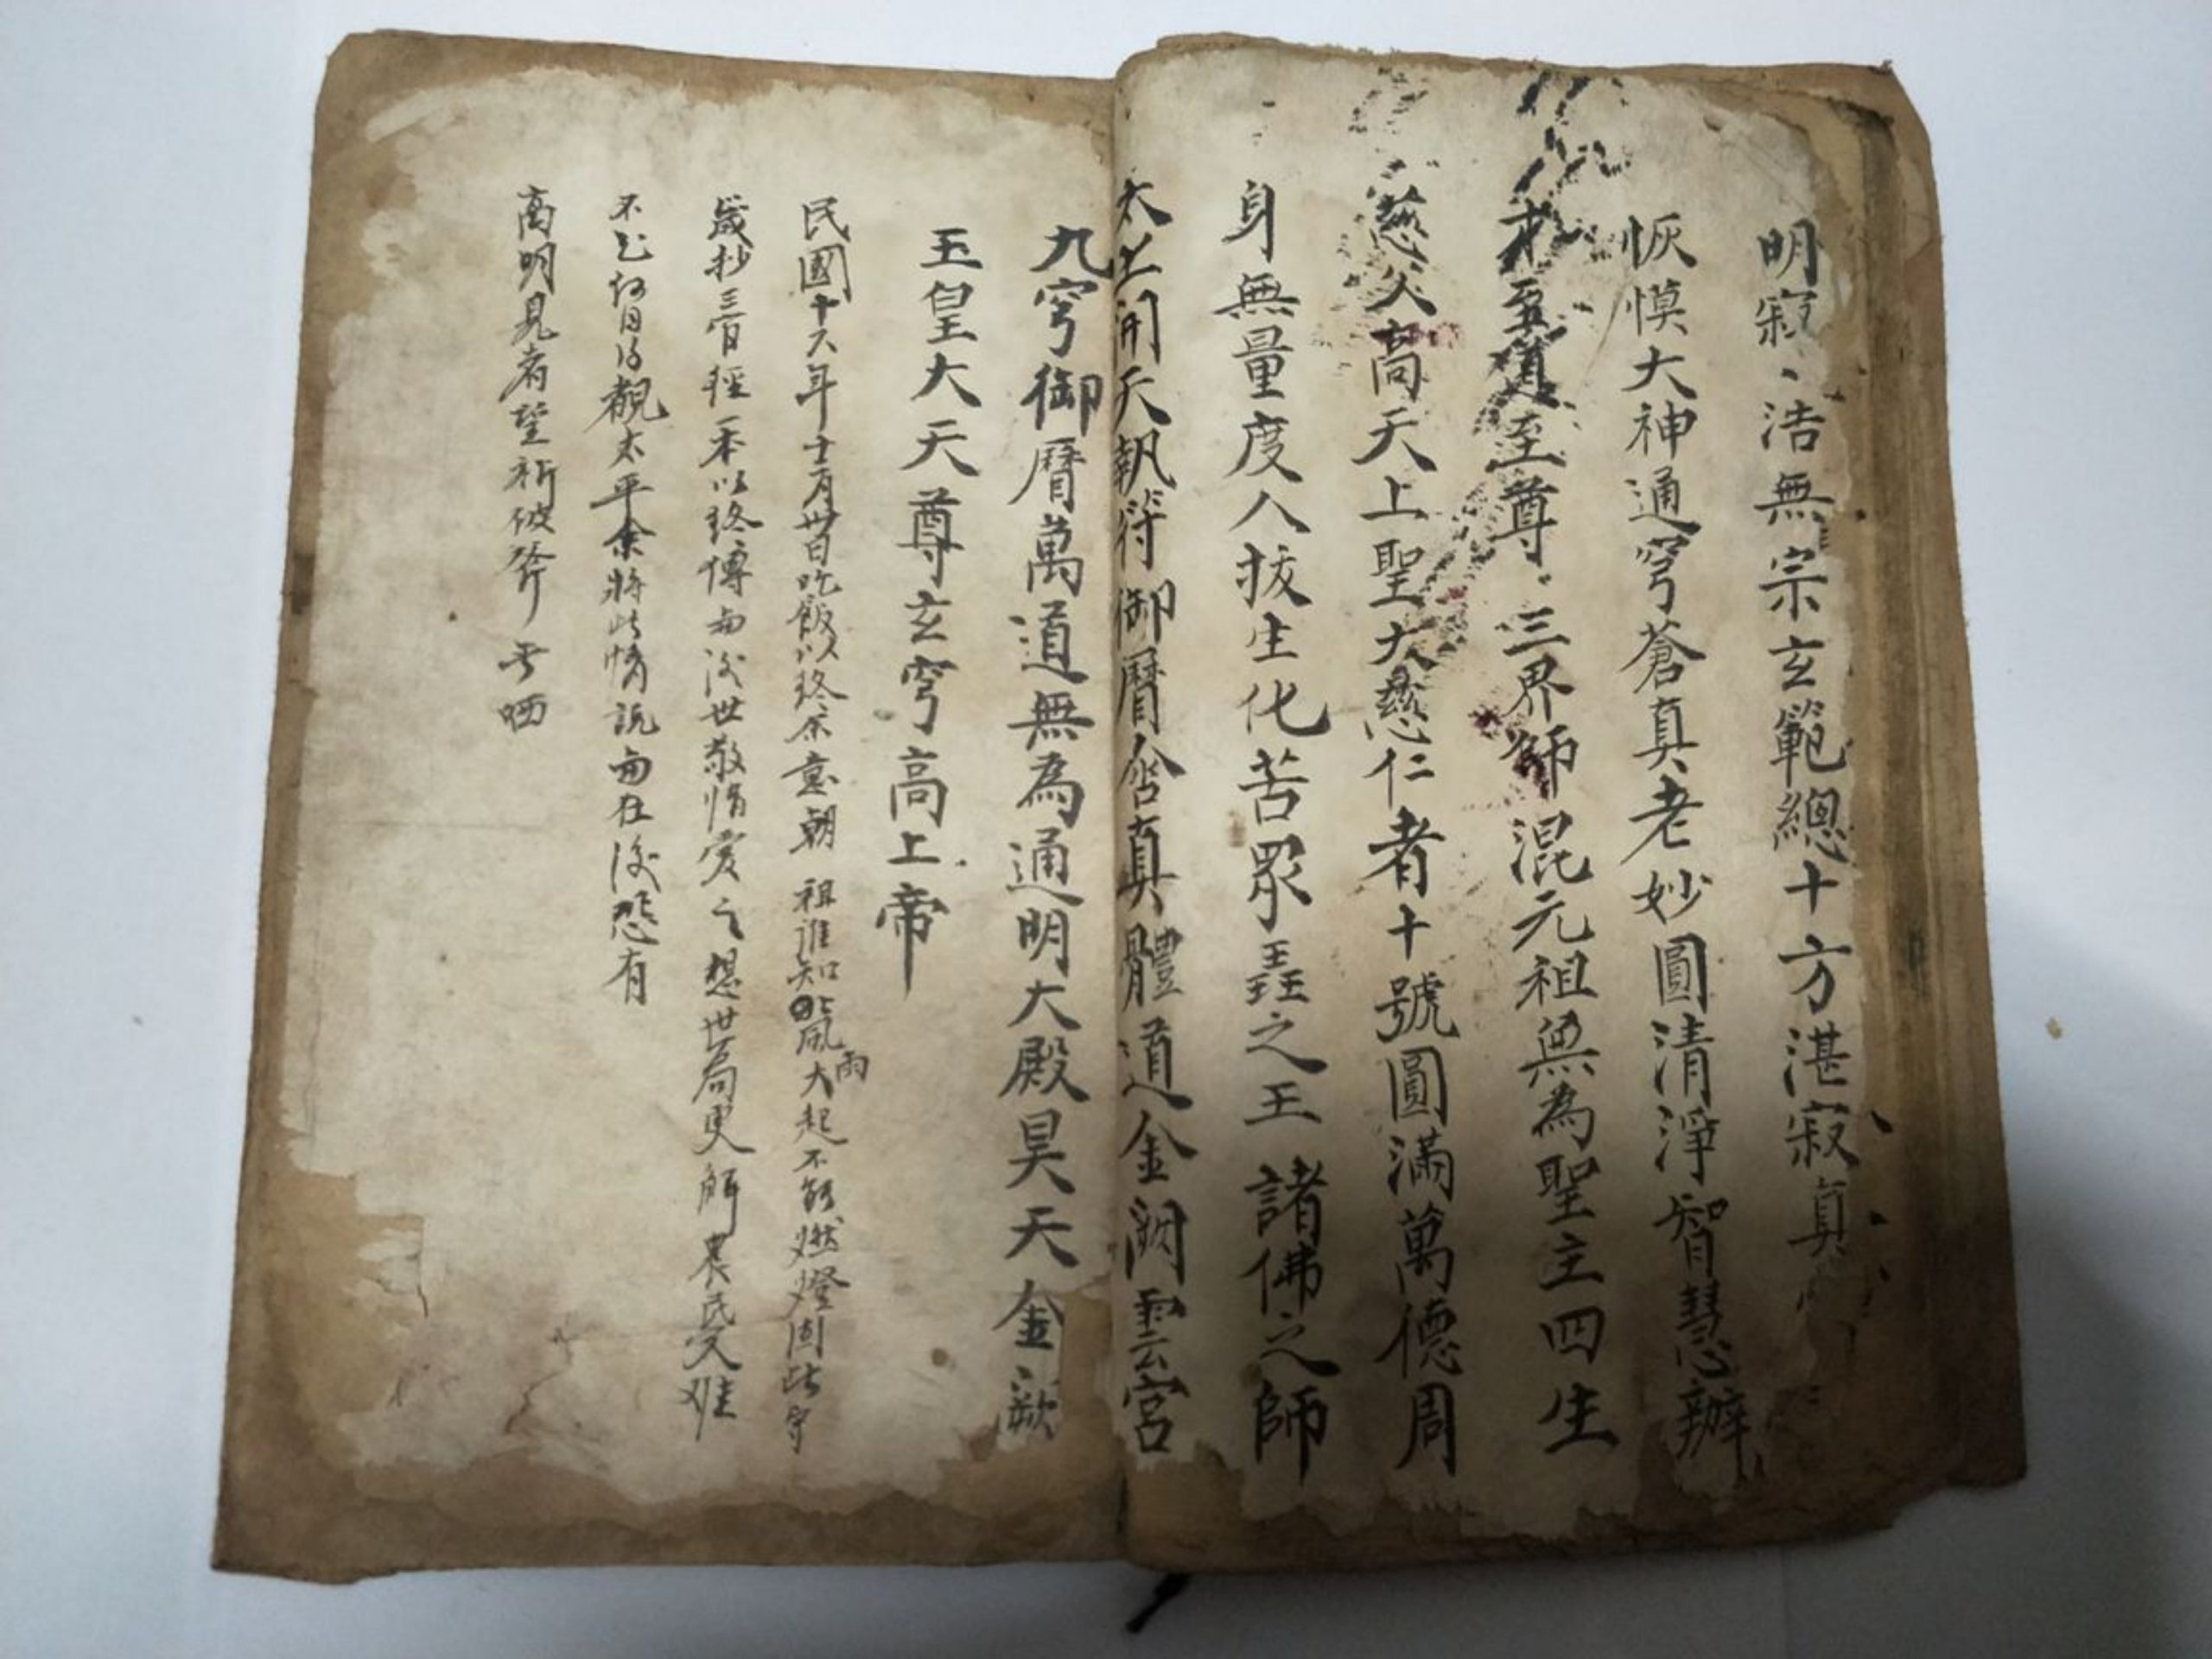 明寂、浩無宗玄範總十方湛寂真
恢慔大神通穹蒼真老妙圓清淨智慧辯
至道至尊三界師混元祖無為聖主四生
慈父高天上聖大慈仁者十號圓滿萬德周
身無量度人拔生化苦眾𤫉之王諸佛之師
太上開天執符御曆含真體道金闕雲宮
九穹御曆萬道無為通明大殿昊天金闕
玉皇大天尊玄穹高上帝
民國十六年十二月廿日吃飯以終余意朝祖誰知風雨大起不能燃燈因此守
歲抄三官經一本以終傳與後世敬惜愛之想世局更解農民受难
不知何日得觀太平余將此情說與在後恐有
高明見者望祈彼斧号哂